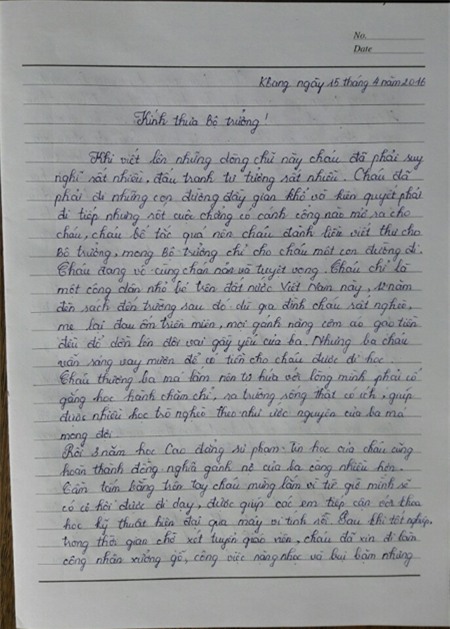 No.
Date
Kbang ngày 15 tháng 4 năm 2016
Kính thưa Bộ trưởng!
Khi viết lên những dòng chữ này cháu đã phải suy
nghĩ rất nhiều, đấu tranh tư tưởng rất nhiều. Cháu đã
phải đi những con đường đầy gian khổ và kiên quyết phải
đi tiếp nhưng rốt cuộc chẳng có cánh cổng nào mở ra cho
cháu, cháu bế tắc quá nên cháu đánh liều viết thư cho
Bộ trưởng, mong Bộ trưởng chỉ cho cháu một con đường đi.
Cháu đang vô cùng chán nản và tuyệt vọng. Cháu chỉ là
một công dân nhỏ bé trên đất nước Việt Nam này, 12 năm
đèn sách đến trường sau đó dù gia đình cháu rất nghèo,
mẹ lại đau ốm triền miên, mọi gánh nặng cơm áo gạo tiền
đều đổ dồn lên đôi vai gầy yếu của ba. Nhưng ba cháu
vẫn sáng vay mượn để có tiền cho cháu được đi học.
Cháu thương ba má lắm nên tự hứa với lòng mình phải cố
gắng học hành chăm chỉ, ra trường sống thật có ích, giúp
được nhiều học trò nghèo theo như ước nguyện của ba má
mong đợi.
Rồi 3 năm học Cao đẳng sư phạm Tin học của cháu cũng
hoàn thành đồng nghĩa gánh nợ của ba càng nhiều hơn.
Cầm tấm bằng trên tay cháu mừng lắm vì từ giờ mình sẽ
có cơ hội được đi dạy, được giúp các em tiếp cận với khoa
học kỹ thuật hiện đại qua máy vi tính rồi. Sau khi tốt nghiệp,
trong thời gian chờ xét tuyển giáo viên, cháu đã xin đi làm
công nhân xưởng gỗ, công việc nặng nhọc và bụi bặm nhưng